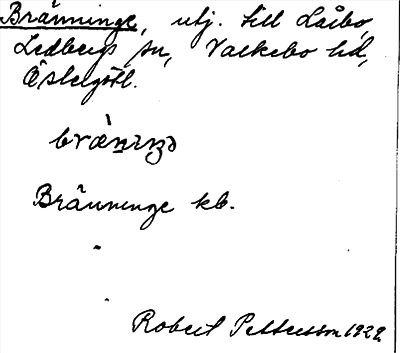 Bränninge, utj. till Låibo,
Ledbergs sn, Valkebo hd,
Östergötl.
bræ̀nıŋə
Bränninge kb.
"
Robert Pettersson 1929